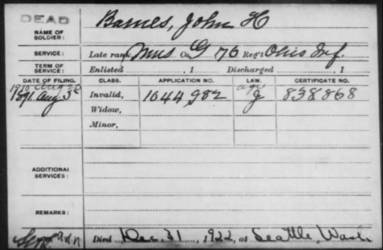 DEAD
NAME OF SOLDIER: Barnes, John H
SERVICE: Late rank, Mus G 76 Reg't Ohio Inf.
TERM OF SERVICE: Enlisted , 1 Discharged , 1
DATE OF FILING. CLASS. APPLICATION NO. LAW. CERTIFICATE NO.
1891 Aug 3 Invalid, 1044982 838868
Widow,
Minor,
ADDITIONAL SERVICES:
REMARKS:
Died Dec. 31, 1922, at Seattle Wash.